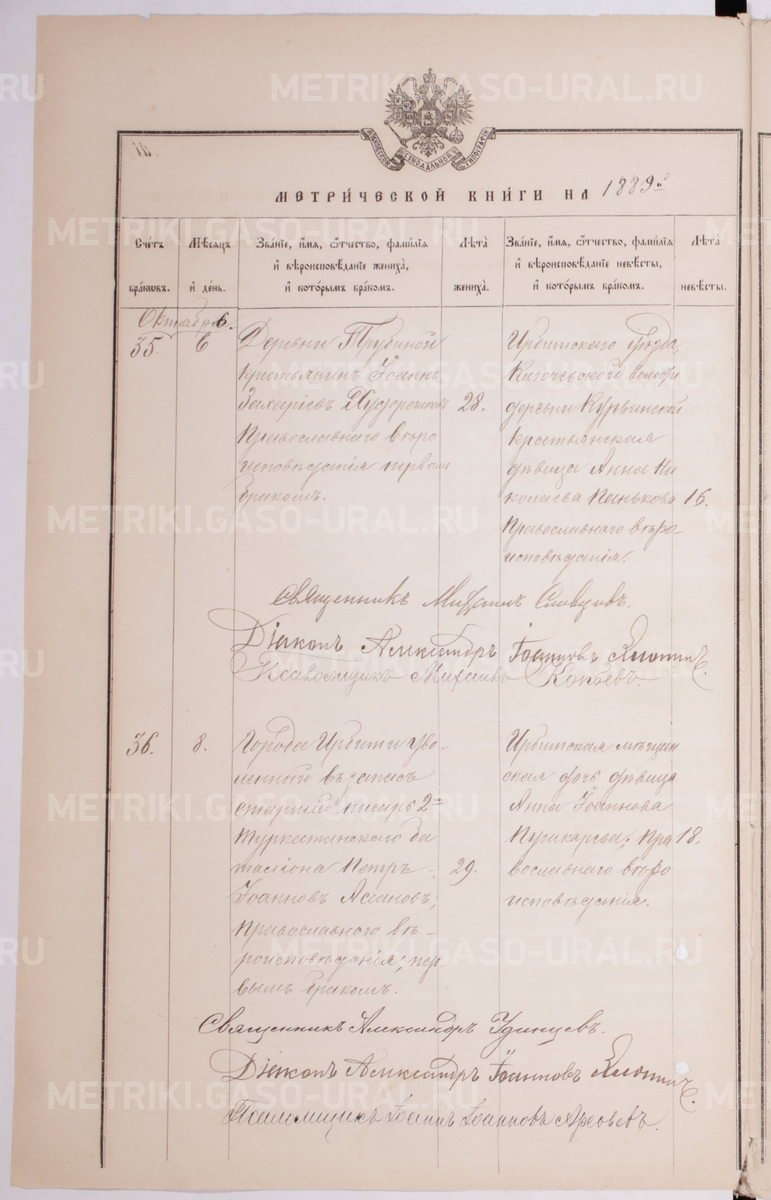 METRIKI.GASO-URAL.RU
МЕТРИ́ЧЕСКОЙ КНИ́ГИ НА 1889й
Сче́тъ бра́ковъ.
Мѣ́сяцъ и́ де́нь.
Зва́нїе, и́мя, ѻ҆́тчество, фамѝлїя и҆ вѣроисповѣ́данїе жениха̀, и҆ кото́рымъ бра́комъ.
Лѣ́та жениха̀.
Зва́нїе, и҆́мя, ѻ҆́тчество, фамѝлїя и҆ вѣроисповѣ́данїе невѣ́сты, и҆ кото́рымъ бра́комъ.
Лѣ́та невѣ́сты.
Октября
35.
6
Деревни Трубиной
крестьянинъ Іоаннъ
Захаріевъ
Православнаго вѣро
исповѣданія первымъ
бракомъ.
28.
Ирбитскаго уѣзда,
Ключевской волости
деревни Курьинской
крестьянская
дѣвица Анна Ни
колаева Панькова
Православнаго вѣро
исповѣданія.
16.
Священникъ Михаилъ Словцовъ.
Діаконъ Александръ Іоанновъ
Псаломщикъ Михаилъ
36.
8.
Города Ирбити уво-
ленный въ запасъ
старшій писарь 2го
Туркестанскаго ба
таліона Петръ
Іоанновъ
Православнаго вѣ-
роисповѣданія, пер
вымъ бракомъ.
29.
Ирбитская мѣщан
ская дочь дѣвица
Анна Іоаннова
Пушкарева, Пра
вославнаго вѣро
исповѣданія.
18.
Священникъ Александръ Удинцевъ.
Діаконъ Александръ Іоанновъ
Псаломщикъ Іоаннъ Іоанновъ